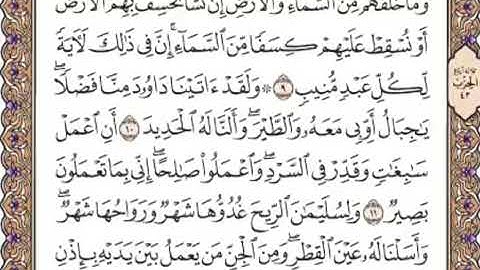 وَمَا خَلْفَهُم مِّنَ ٱلسَّمَآءِ وَٱلْأَرْضِ إِن نَّشَأْ نَخْسِفْ بِهِمُ ٱلْأَرْضَ
أَوْ نُسْقِطْ عَلَيْهِمْ كِسَفًا مِّنَ ٱلسَّمَآءِ إِنَّ فِى ذَٰلِكَ لَـَٔايَةً
لِّكُلِّ عَبْدٍ مُّنِيبٍ ٩ ۞ وَلَقَدْ ءَاتَيْنَا دَاوُۥدَ مِنَّا فَضْلًا
يَٰجِبَالُ أَوِّبِى مَعَهُۥ وَٱلطَّيْرَ وَأَلَنَّا لَهُ ٱلْحَدِيدَ ١٠ أَنِ ٱعْمَلْ
سَٰبِغَٰتٍ وَقَدِّرْ فِى ٱلسَّرْدِ وَٱعْمَلُوا۟ صَٰلِحًا إِنِّى بِمَا تَعْمَلُونَ
بَصِيرٌ ١١ وَلِسُلَيْمَٰنَ ٱلرِّيحَ غُدُوُّهَا شَهْرٌ وَرَوَاحُهَا شَهْرٌ
وَأَسَلْنَا لَهُۥ عَيْنَ ٱلْقِطْرِ وَمِنَ ٱلْجِنِّ مَن يَعْمَلُ بَيْنَ يَدَيْهِ بِإِذْنِ
الحزب
٤٣